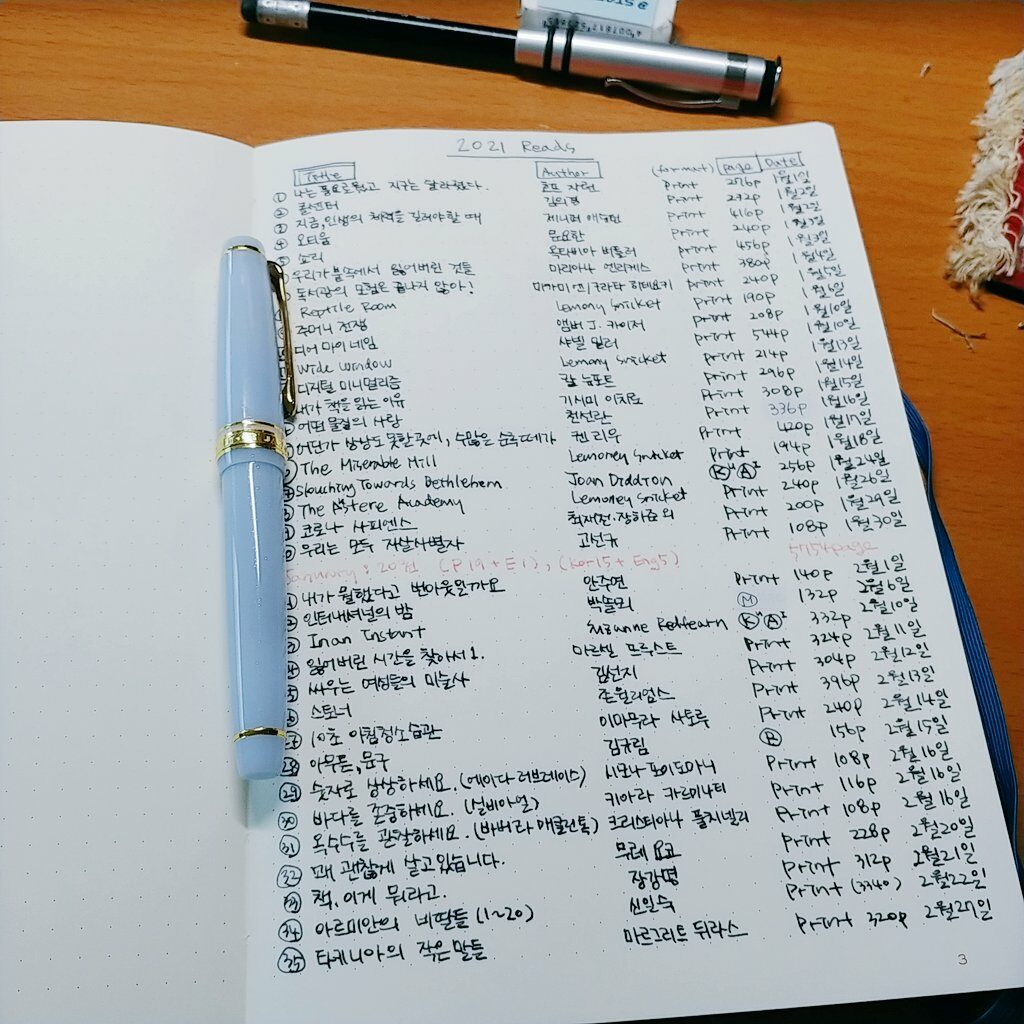 2021 Reads
Title Author (format) page Date
① 나는 풍요로웠고 지구는 달라졌다. 호프 자런 Print 276p 1월1일
② 콜센터 김의경 Print 292p 1월2일
③ 지금, 인생의 체력을 길러야할 때 제니퍼 애슈턴 Print 416p 1월2일
④ 오티움 문요한 Print 240p 1월3일
⑤ 쇼리 옥타비아 버틀러 Print 456p 1월3일
우리가 불 속에서 잃어버린 것들 마리아나 엔리케스 Print 380p 1월4일
도서관의 모험은 끝나지 않아! 히데요키 Print 240p 1월5일
Reptile Room Lemony Snicket Print 190p 1월6일
주머니 전쟁 앰버 J. 카이저 Print 208p 1월10일
디어 마이 네임 샤넬 밀러 Print 544p 1월10일
Wide Window Lemony Snicket Print 214p 1월13일
디지털 미니멀리즘 칼 뉴포트 Print 296p 1월14일
내가 책을 읽는 이유 기시미 이치로 Print 308p 1월15일
어떤 물질의 사랑 천선란 Print 336p 1월16일
어딘가 상상도 못할 곳에, 수많은 순록떼가 켄 리우 Print 420p 1월17일
The Miserable Mill Lemoney Snicket Print 194p 1월18일
Slouching Towards Bethlehem Joan Diddion 256p 1월24일
The Austere Academy Lemoney Snicket Print 240p 1월26일
코로나 사피엔스 최재천·장하준 외 Print 200p 1월29일
우리는 모두 자살사별자 고선규 Print 108p 1월30일
Summary : 20권 (P19 + E1), (Kor15 + Eng5) 5754page
내가 뭘했다고 번아웃일까요 안주연 Print 140p 2월1일
인터내셔널의 밤 박솔뫼 Ⓜ 132p 2월6일
In an Instant Suzanne Redfearn 332p 2월10일
잃어버린 시간을 찾아서 1. 마르셀 프루스트 Print 324p 2월11일
싸우는 여성들의 미술사 김선지 Print 304p 2월12일
스토너 존 윌리엄스 Print 396p 2월13일
27 10초 아침청소습관 이마무라 사토루 Print 240p 2월14일
28 아무튼, 문구 김규림 Ⓡ 156p 2월15일
29 숫자로 상상하세요. (에이다 러브레이스) 시모나 Print 108p 2월16일
30 바다를 존중하세요. (실비아얼) 키아라 카르미나티 Print 116p 2월16일
31 옥수수를 관찰하세요. (바버라 매클린톡) 크리스티아나 풀치넬리 Print 108p 2월16일
32 꽤 괜찮게 살고 있습니다. 무레 요코 Print 228p 2월20일
33 책, 이게 뭐라고. 장강명 Print 312p 2월21일
34 아르미안의 네딸들 (1~20) 신일숙 Print (3340) 2월22일
35 타키니아의 작은 말들 마르그리트 뒤라스 Print 320p 2월27일
3